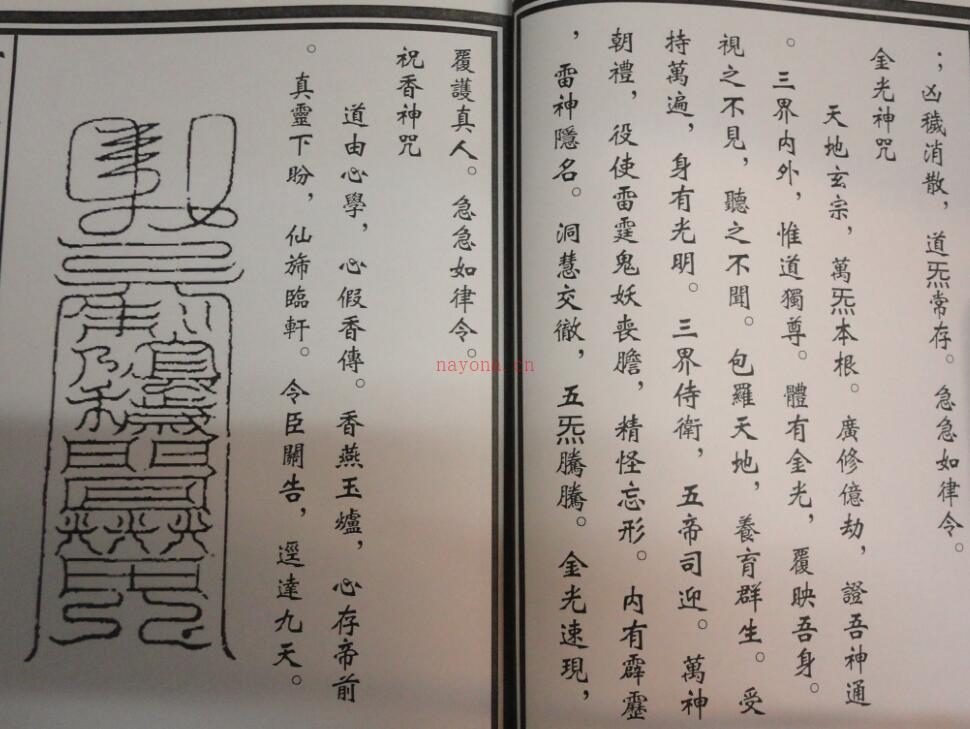 ；凶穢消散，道炁常存。急急如律令。
金光神咒
天地玄宗，萬炁本根。廣修億劫，證吾神通
。三界內外，惟道獨尊。體有金光，覆映吾身。
視之不見，聽之不聞。包羅天地，養育群生。受
持萬遍，身有光明。三界侍衛，五帝司迎。萬神
朝禮，役使雷霆鬼妖喪膽，精怪忘形。內有霹靂
，雷神隱名。洞慧交徹，五炁騰騰。金光速現，
覆護真人。急急如律令。
祝香神咒
道由心學，心假香傳。香爇玉爐，心存帝前
。真靈下盼，仙旆臨軒。令臣關告，逕達九天。
nayona.cn